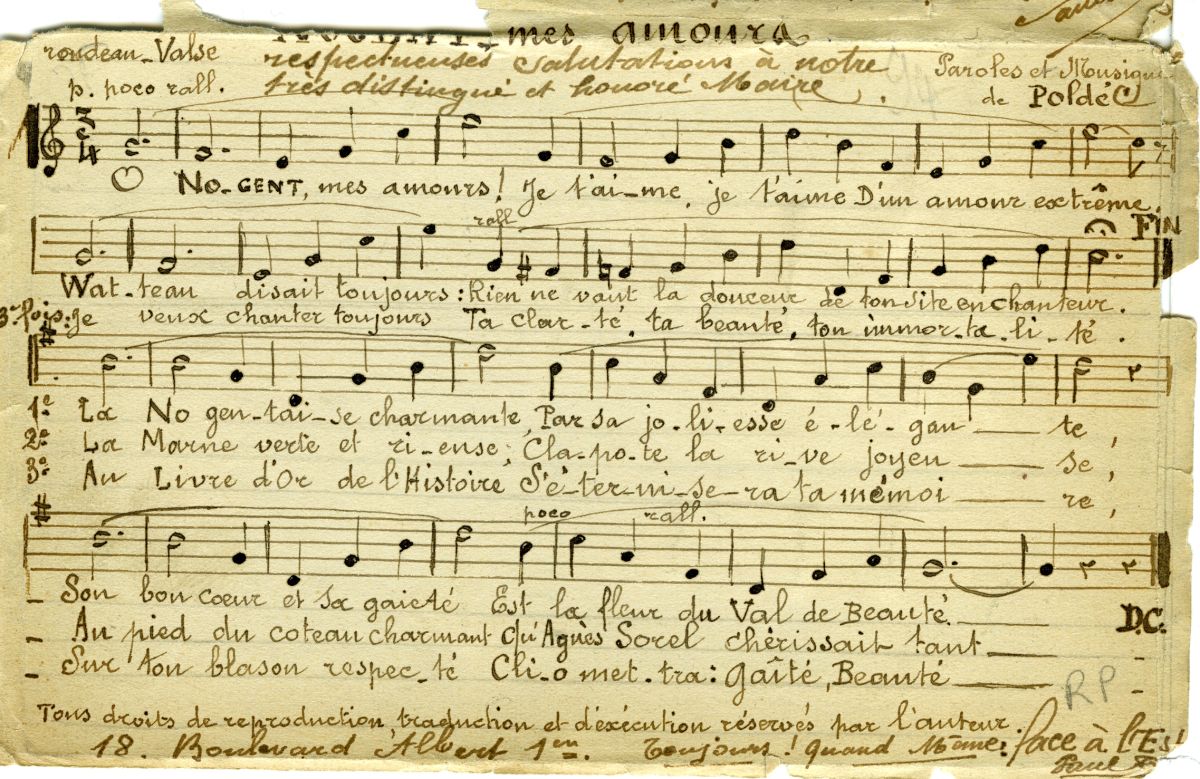 mes amours
rondeau-Valse
respectueuses salutations à notre
très distingué et honoré Maire
p. poco rall.
Paroles et Musique
de POLDÉ
3
4
NO-GENT, mes amours! Je t'ai-me, je t'aime D'un amour extrême.
rall
FIN
Wat-teau disait toujours: Rien ne vaut la douceur de ton site enchanteur.
3e fois: Je veux chanter toujours Ta clar-té, ta beauté, ton immor-ta-li-té.
1e La No gen-tai-se charmante, Par sa jo-li-esse é-lé-gan — te,
2e La Marne verte et ri-euse, Cla-po-te la ri-ve joyeu — se,
3e Au Livre d'Or de l'Histoire S'é-ter-ni-se-ra ta mémoi — re,
poco rall.
_ Son bon cœur et sa gaieté Est la fleur du Val de Beauté. —
_ Au pied du coteau charmant Qu'Agnès Sorel chérissait tant —
_ Sur ton blason respec-té Cli-o met-tra: Gaîté, Beauté —
D.C.
RP
Tous droits de reproduction, traduction et d'éxécution réservés par l'auteur.
18. Boulevard Albert 1er. Toujours! Quand Même: face à l'Es!
Paul